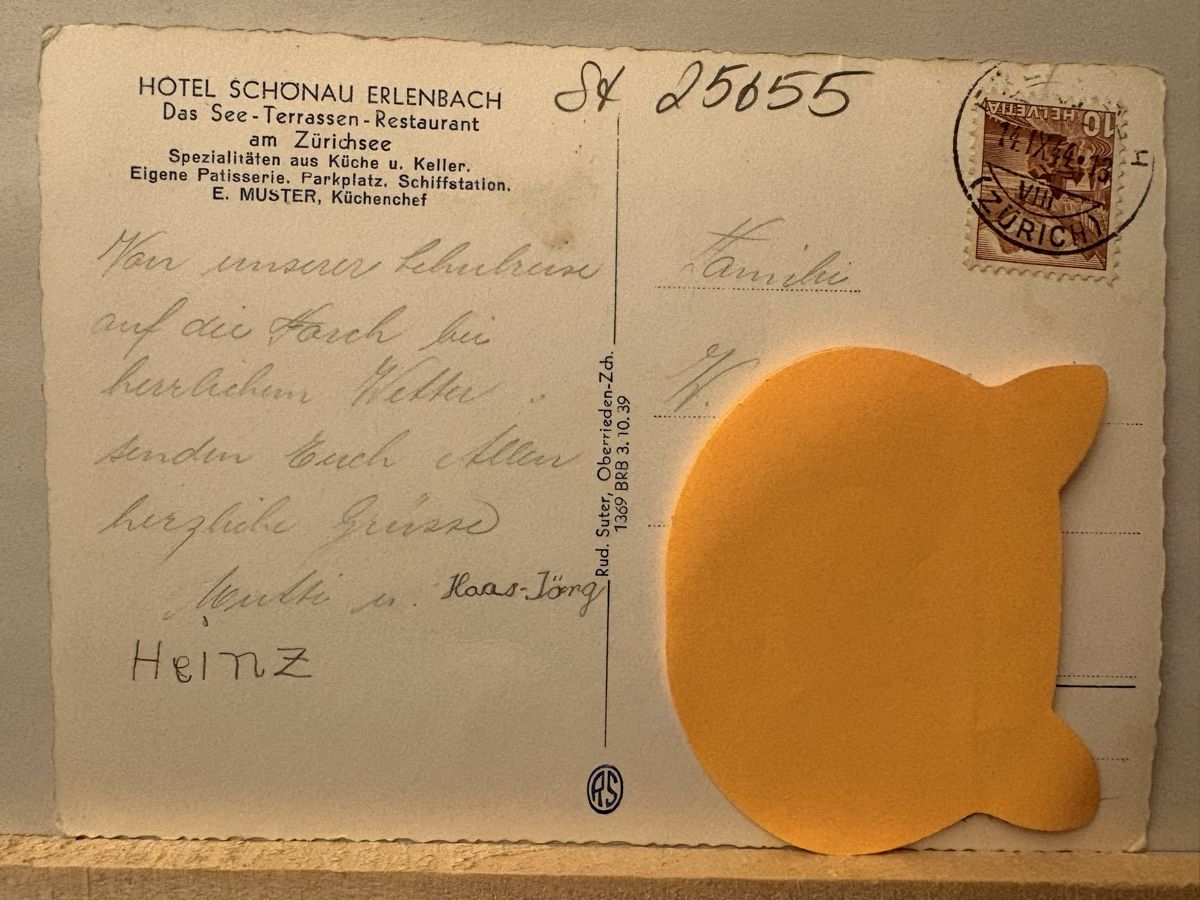 HOTEL SCHÖNAU ERLENBACH
Das See-Terrassen-Restaurant
am Zürichsee
Spezialitäten aus Küche u. Keller.
Eigene Patisserie. Parkplatz. Schiffstation.
E. MUSTER, Küchenchef
Von unserer Schulreise
auf die Forch bei
herrlichem Wetter
senden Euch Allen
herzliche Grüsse
Mutti u. Haas-Jörg
Heinz
Rud. Suter, Oberrieden-Zch.
1369 BRB 3.10.39
RS
St 25655
10 HELVETIA
14.IX.44.-13
VIII
(ZÜRICH)
Familie
W.